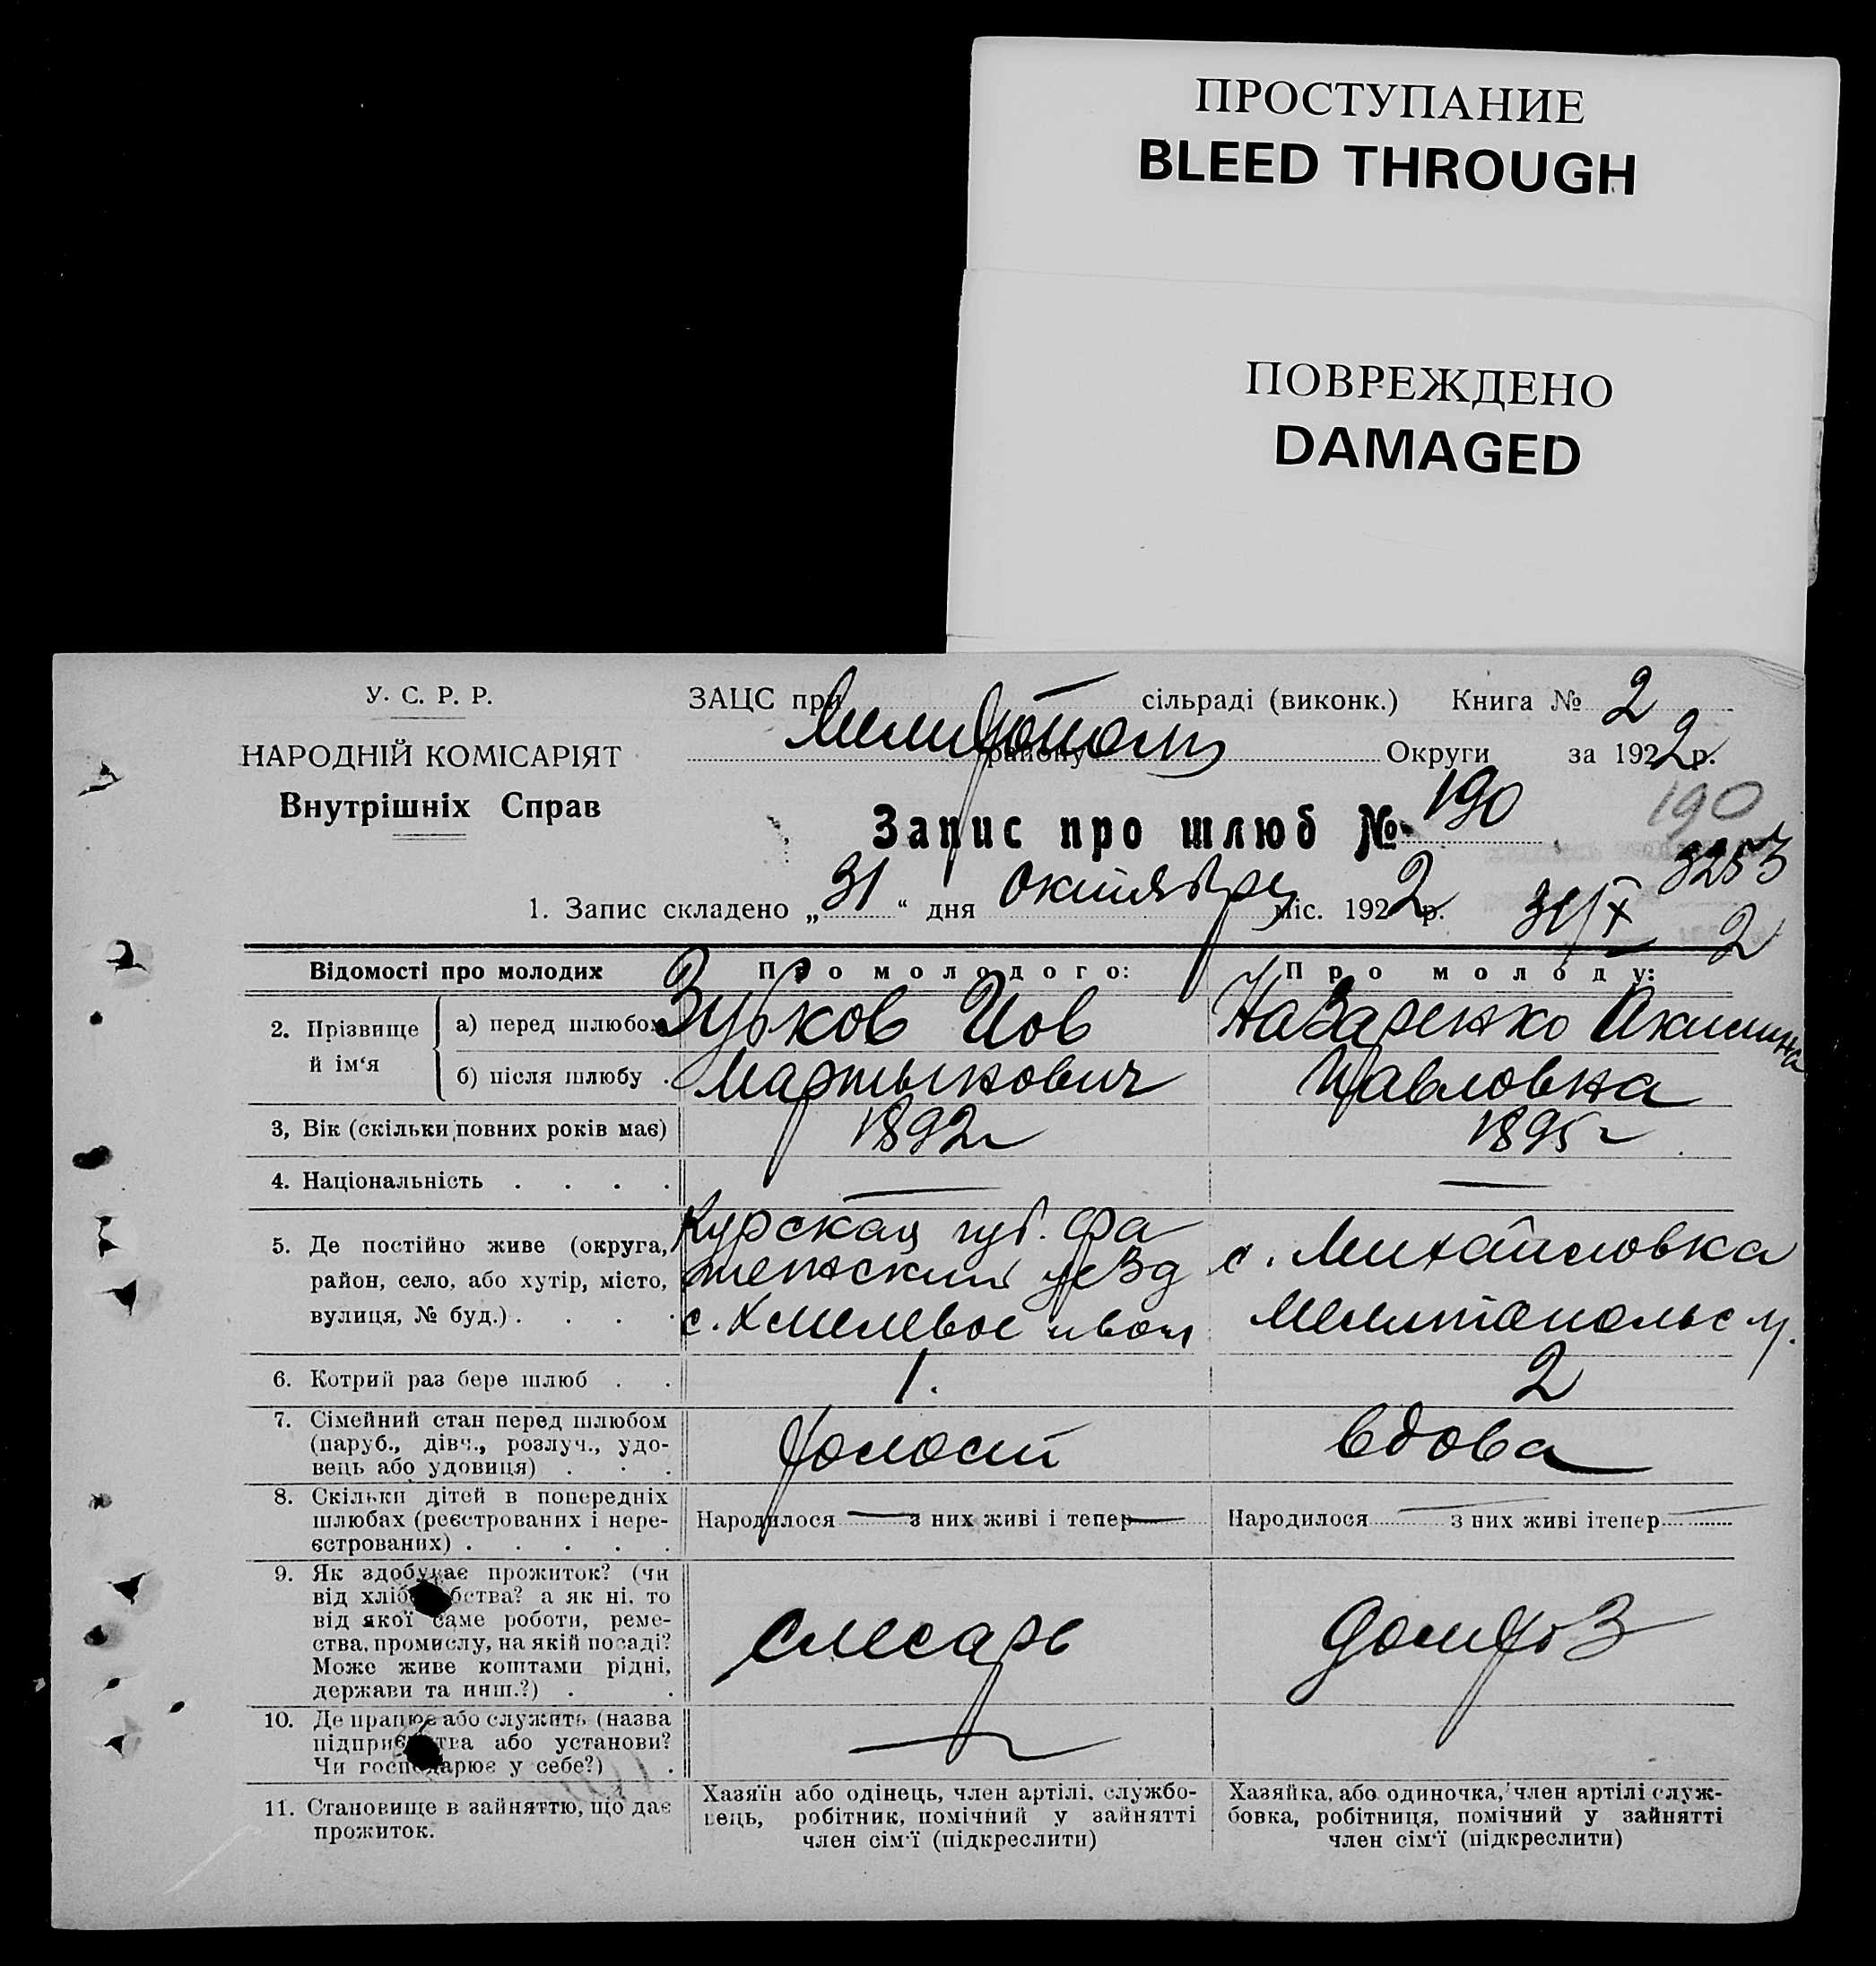 ПРОСТУПАНИЕ
BLEED THROUGH
ПОВРЕЖДЕНО
DAMAGED
У. С. Р. Р.
НАРОДНІЙ КОМІСАРІЯТ
Внутрішніх Справ
ЗАЦС при сільраді (виконк.) Книга № 2
Мелитополь району Округи за 1922 р.
Запис про шлюб № 190
190
3253
1. Запис складено „31“ дня Октября міс. 1922 р. 31/X 2
Відомості про молодих
Про молодого:
Про молоду:
2. Прізвище й ім‘я
а) перед шлюбом
Зубков Иов
Назаренко Акилина
б) після шлюбу .
Мартынович
Павловна
3, Вік (скільки повних років має)
1892 г
1895 г
4. Національність . . . .
—
—
5. Де постійно живе (округа,
район, село, або хутір, місто,
вулиця, № буд.) . . . .
Курская губ. Фа
тежский уезд
с. Хмелевое
с. Михайловка
Мелитопольс у.
6. Котрий раз бере шлюб . .
1.
2
7. Сімейний стан перед шлюбом
(паруб., дівч., розлуч., удо-
вець або удовиця) . . .
холост
вдова
8. Скільки дітей в попередніх
шлюбах (реєстрованих і нере-
єстрованих) . . . . .
Народилося — з них живі і тепер —
Народилося — з них живі ітепер —
9. Як здобуває прожиток? (чи
від хліборобства? а як ні, то
від якої саме роботи, реме-
ства, промислу, на якій посаді?
Може живе коштами рідні,
держави та инш.?) . .
слесарь
домхоз
10. Де працює або служить (назва
підприємства або установи?
Чи господарює у себе?) .
—
11. Становище в зайняттю, що дає
прожиток.
Хазяїн або одінець, член артілі, службо-
вець, робітник, помічний у зайнятті
член сім‘ї (підкреслити)
Хазяйка, або одиночка, член артілі служ-
бовка, робітниця, помічний у зайнятті
член сім‘ї (підкреслити)